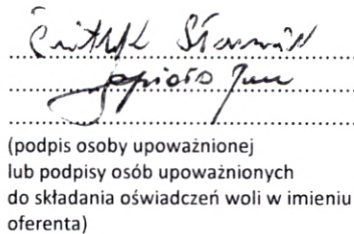 (podpis osoby upoważnionej
lub podpisy osób upoważnionych
do składania oświadczeń woli w imieniu
oferenta)